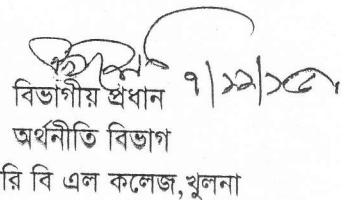 ৭/১২/১৫
বিভাগীয় প্রধান
অর্থনীতি বিভাগ
রি বি এল কলেজ,খুলনা